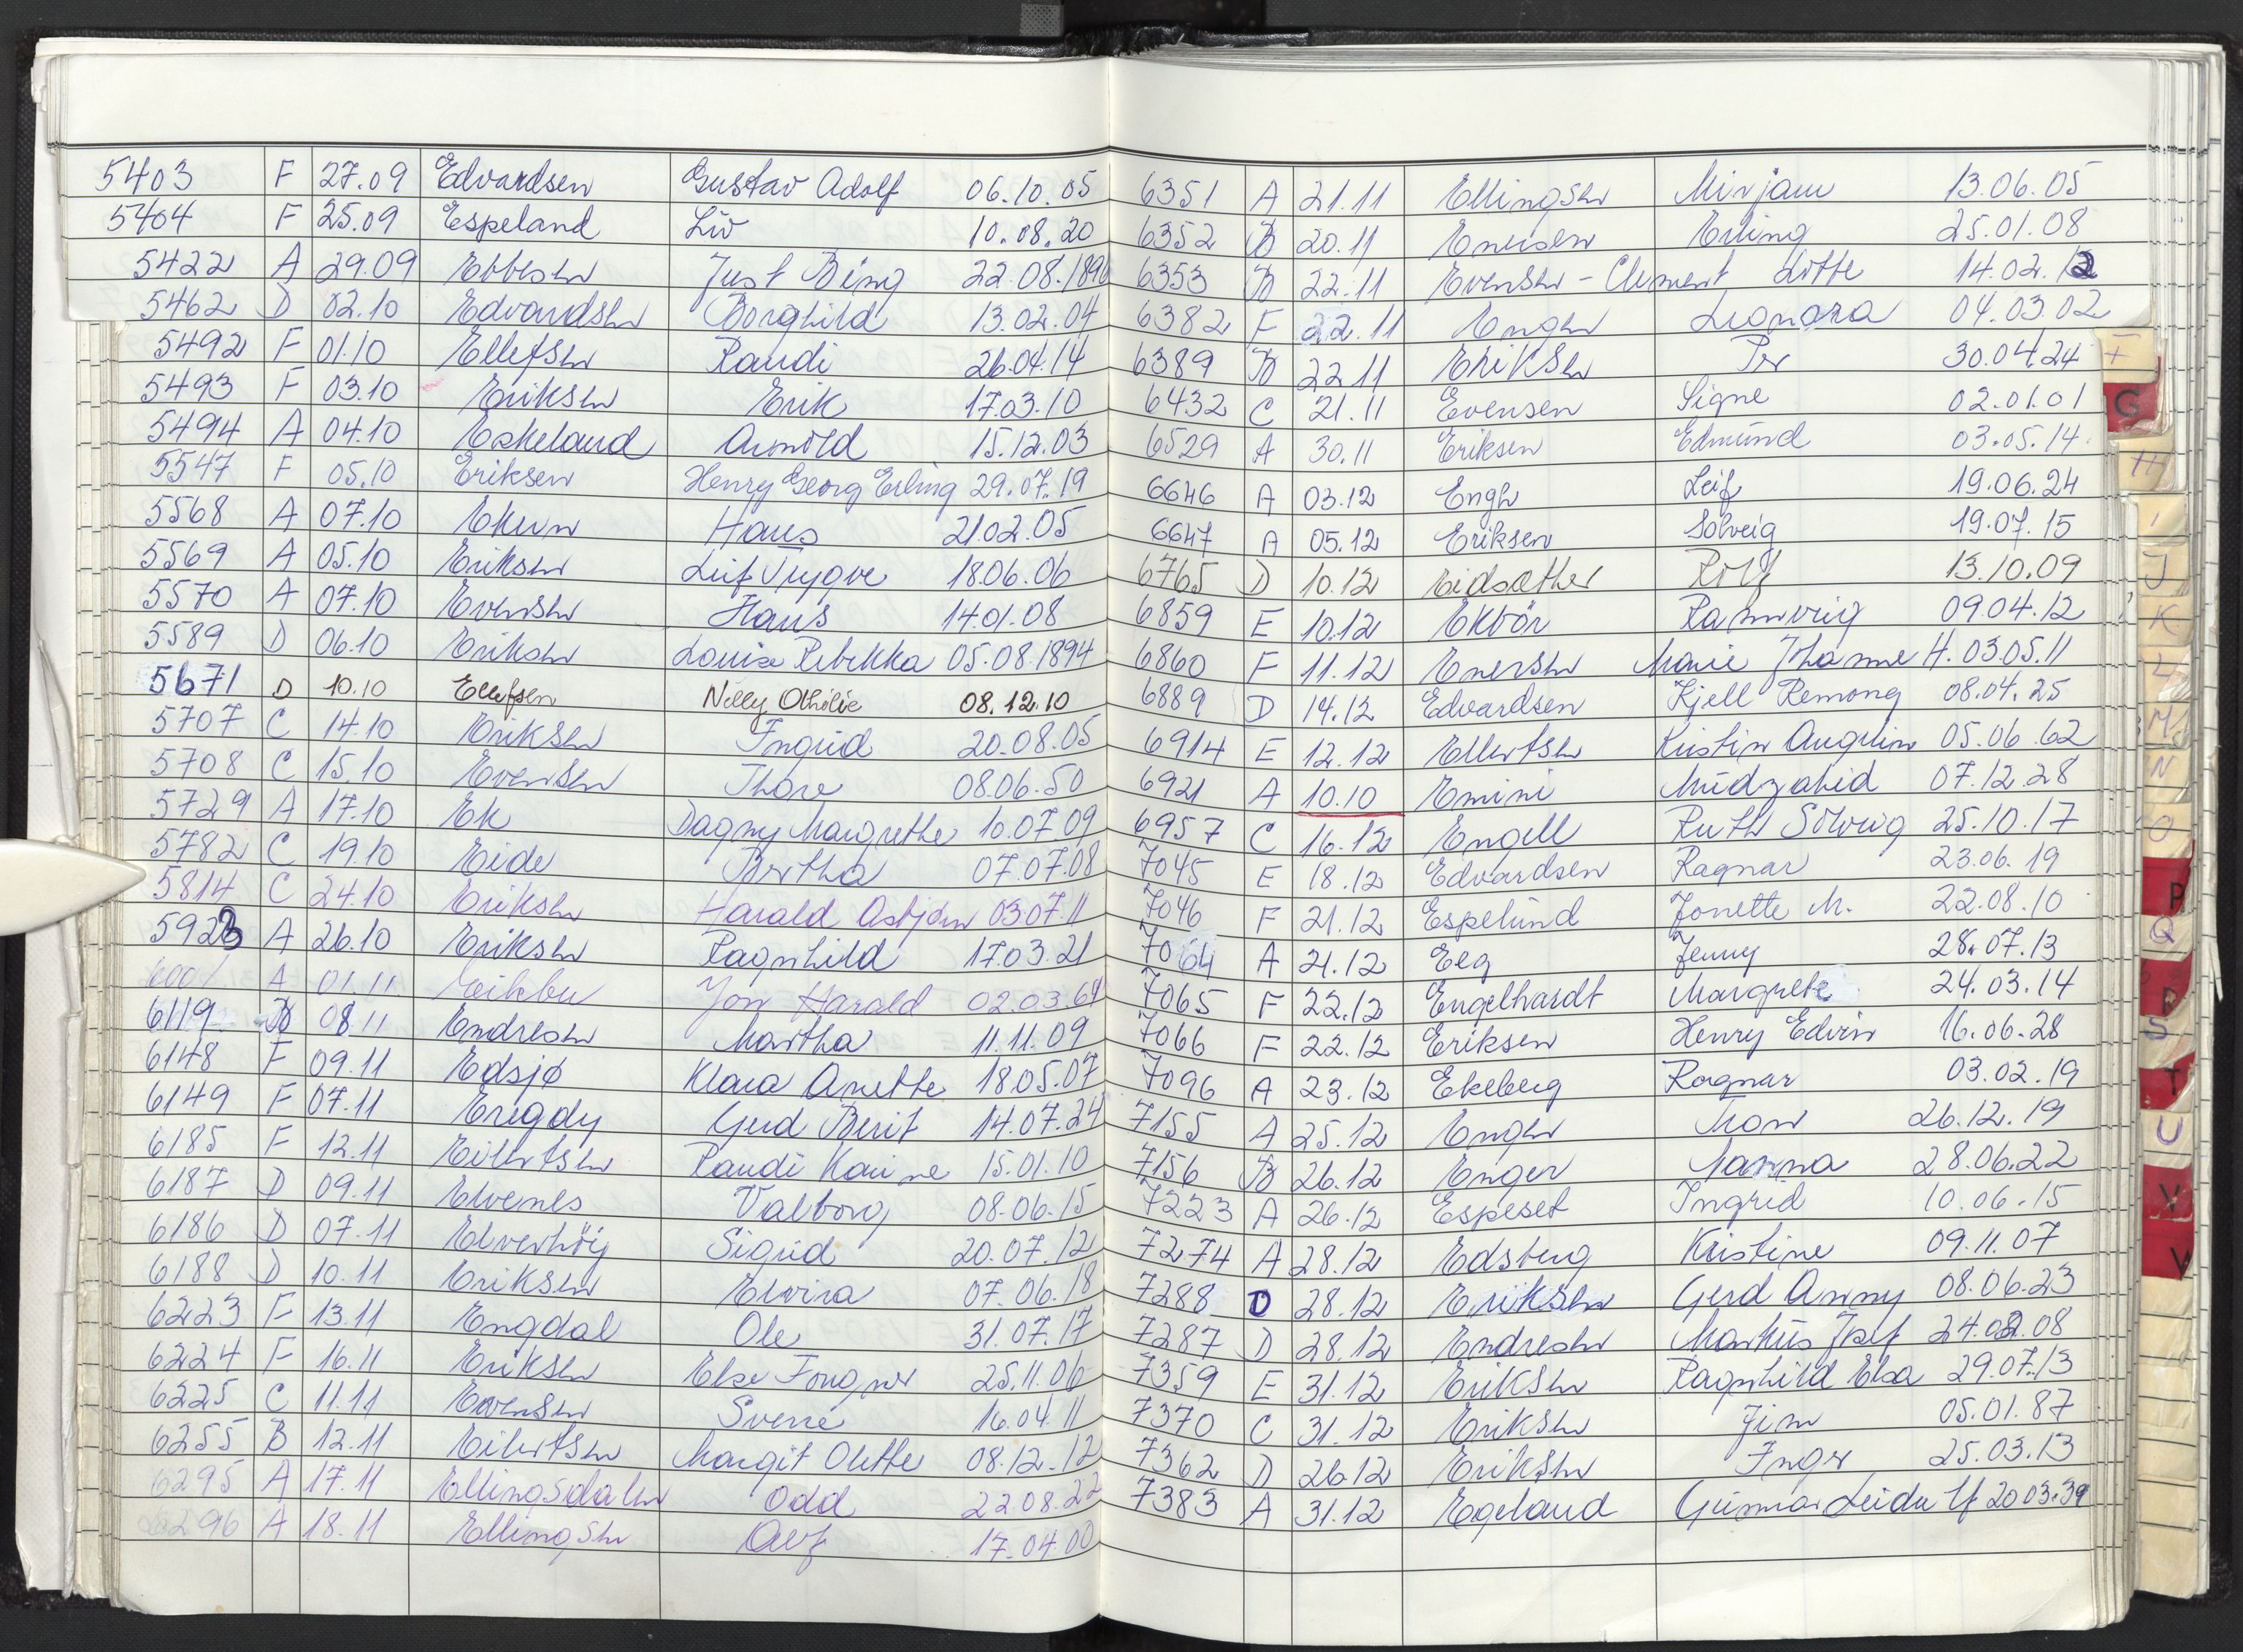 5403 F 27.09 Edvardsen Gustav Adolf 06.10.05
5404 F 25.09 Espeland Liv 10.08.20
5422 A 29.09 Ebbesen Just Bing 22.08.1896
5462 D 02.10 Edvardsen Borghild 13.02.04
5492 F 01.10 Ellefsen Randi 26.04.14
5493 F 03.10 Eriksen Erik 17.03.10
5494 A 04.10 Eskeland Arnold 15.12.03
5547 F 05.10 Eriksen Henry Georg Erling 29.07.19
5568 A 07.10 Ekern Hans 21.02.05
5569 A 05.10 Eriksen Leif Trygve 18.06.06
5570 A 07.10 Evensen Hans 14.01.08
5589 D 06.10 Eriksen Louise Rebekka 05.08.1894
5671 D 10.10 Ellefsen Nelly Othilie 08.12.10
5707 C 14.10 Eriksen Ingrid 20.08.05
5708 C 15.10 Evensen Thore 08.06.50
5729 A 17.10 Ek Dagny Margrethe 10.07.09
5782 C 19.10 Eide Bertha 07.07.08
5814 C 24.10 Eriksen Harald Asbjørn 03.07.11
5923 A 26.10 Eriksen Ragnhild 17.03.21
6001 A 01.11 Eikebu Jon Harald 02.03.64
6119 B 08.11 Endresen Martha 11.11.09
6148 F 09.11 Edsjø Klara Anette 18.05.07
6149 F 07.11 Eregdy Gerd Berit 14.07.24
6185 F 12.11 Eilertsen Randi Karine 15.01.10
6187 D 09.11 Elvenes Valborg 08.06.15
6186 D 07.11 Elverhöy Sigrid 20.07.12
6188 D 10.11 Eriksen Elvira 07.06.18
6223 F 13.11 Engdal Ole 31.07.17
6224 F 16.11 Eriksen Else Fougner 25.11.06
6225 C 11.11 Evensen Sverre 16.04.11
6255 B 12.11 Eilertsen Margit Olette 08.12.12
6295 A 17.11 Ellingsdalen Odd 22.08.22
6296 A 18.11 Ellingsen Alf 17.04.00
6351 A 21.11 Ellingsen Mirjam 13.06.05
6352 B 20.11 Enersen Erling 25.01.08
6353 B 22.11 Evensen - Clement Lotte 14.02.12
6382 F 22.11 Engen Leonora 04.03.02
6389 B 22.11 Eriksen Per 30.04.24
6432 C 21.11 Evensen Signe 02.01.01
6529 A 30.11 Eriksen Edmund 03.05.14
6646 A 03.12 Engh Leif 19.06.24
6647 A 05.12 Eriksen Solveig 19.07.15
6765 D 10.12 Eidsæther Rolf 13.10.09
6859 E 10.12 Ekbör Rannveig 09.04.12
6860 F 11.12 Enersen Marie Johanne H. 03.05.11
6889 D 14.12 Edvardsen Kjell Remong 08.04.25
6914 E 12.12 Ellertsen Kristin Angelin 05.06.62
6921 A 10.10 Emini Mudzahid 07.12.28
6957 C 16.12 Engell Ruth Solveig 25.10.17
7045 E 18.12 Edvardsen Ragnar 23.06.19
7046 F 21.12 Espelund Jonette M. 22.08.10
7064 A 21.12 Eeg Jenny 28.07.13
7065 F 22.12 Engelhardt Margrete 24.03.14
7066 F 22.12 Eriksen Henry Edvin 16.06.28
7096 A 23.12 Ekeberg Ragnar 03.02.19
7155 A 25.12 Engen Thor 26.12.19
7156 B 26.12 Enger Nanna 28.06.22
7223 A 26.12 Espeset Ingrid 10.06.15
7274 A 28.12 Edsberg Kristine 09.11.07
7288 D 28.12 Eriksen Gerd Anny 08.06.23
7287 D 28.12 Endresen Markus Josef 24.02.08
7359 E 31.12 Eriksen Ragnhild Elsa 29.07.13
7370 C 31.12 Eriksen Jim 05.01.87
7362 D 26.12 Eriksen Inger 25.03.13
7383 A 31.12 Egeland Gunnar Leider 20.03.39
F
G
H
I
J
K
L
M
N
O
P
Q
R
S
T
U
V